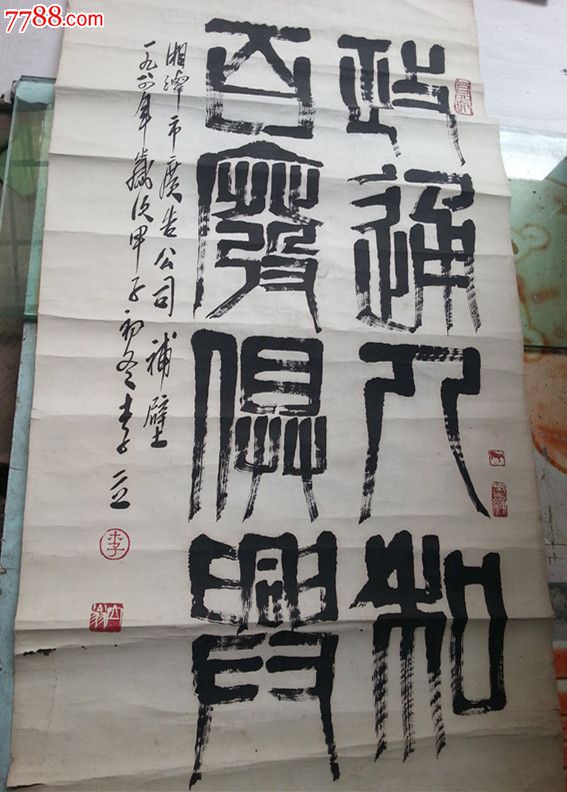 7788.com
政通人和
百廢俱興
湘潭市廣告公司補壁
一九八四年歲次甲子初冬李立
李